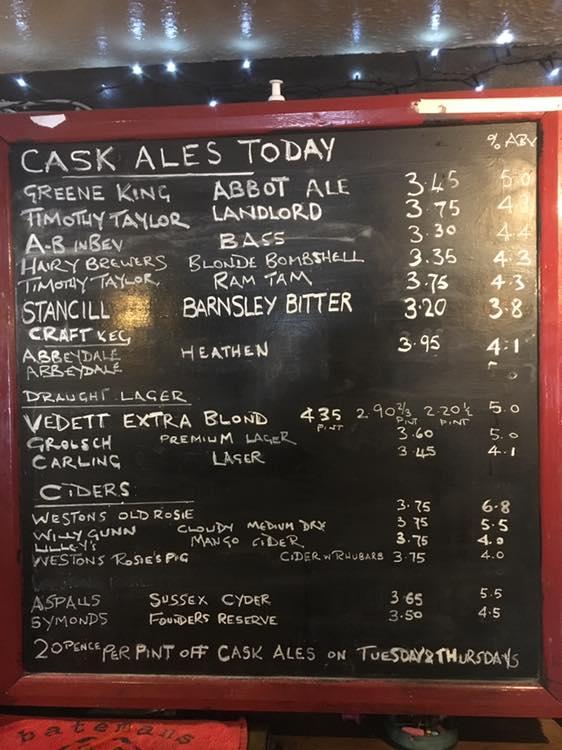 % ABV
CASK ALES TODAY
GREENE KING ABBOT ALE 3.45 5.0
TIMOTHY TAYLOR LANDLORD 3.75 4.3
A-B INBEV BASS 3.30 4.4
HAIRY BREWERS BLONDE BOMBSHELL 3.35 4.3
TIMOTHY TAYLOR RAM TAM 3.75 4.3
STANCILL BARNSLEY BITTER 3.20 3.8
CRAFT KEG
ABBEYDALE HEATHEN 3.95 4.1
ABBEYDALE
DRAUGHT LAGER
VEDETT EXTRA BLOND 435 PINT 2.90 2/3 PINT 2.20 1/2 PINT 5.0
GROLSCH PREMIUM LAGER 3.60 5.0
CARLING LAGER 3.45 4.1
CIDERS
WESTONS OLD ROSIE 3.75 6.8
WILLY GUNN CLOUDY MEDIUM DRY 3.75 5.5
LILLEY'S MANGO CIDER 3.75 4.0
WESTONS ROSIE'S PIG CIDER W RHUBARB 3.75 4.0
ASPALLS SUSSEX CYDER 3.65 5.5
SYMONDS FOUNDERS RESERVE 3.50 4.5
20 PENCE PER PINT OFF CASK ALES ON TUESDAY & THURSDAYS
batemans